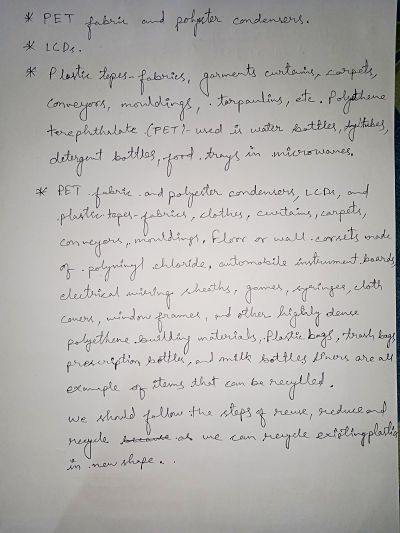 * PET fabric and polyester condensers.
* LCDs.
* Plastic tapes - fabrics, garments curtains, carpets,
conveyors, mouldings, tarpaulins, etc. Polyethene
terephthalate (PET) - used is water bottles,
detergent bottles, food trays in microwaves.
* PET fabric and polyester condensers, LCDs, and
plastic tapes - fabrics, clothes, curtains, carpets,
conveyers, mouldings. Floor or wall corsets made
of polyvinyl chloride, automobile instrument boards
electrical wiring sheaths, games, syringes, cloth
covers, window frames, and other highly dense
polyethene building materials, Plastic bags, trash bags
prescription bottles, and milk bottles liners are all
example of items that can be recylled.
we should follow the steps of reuse, reduce and
recycle because as we can recycle existing plastic
in new shape..